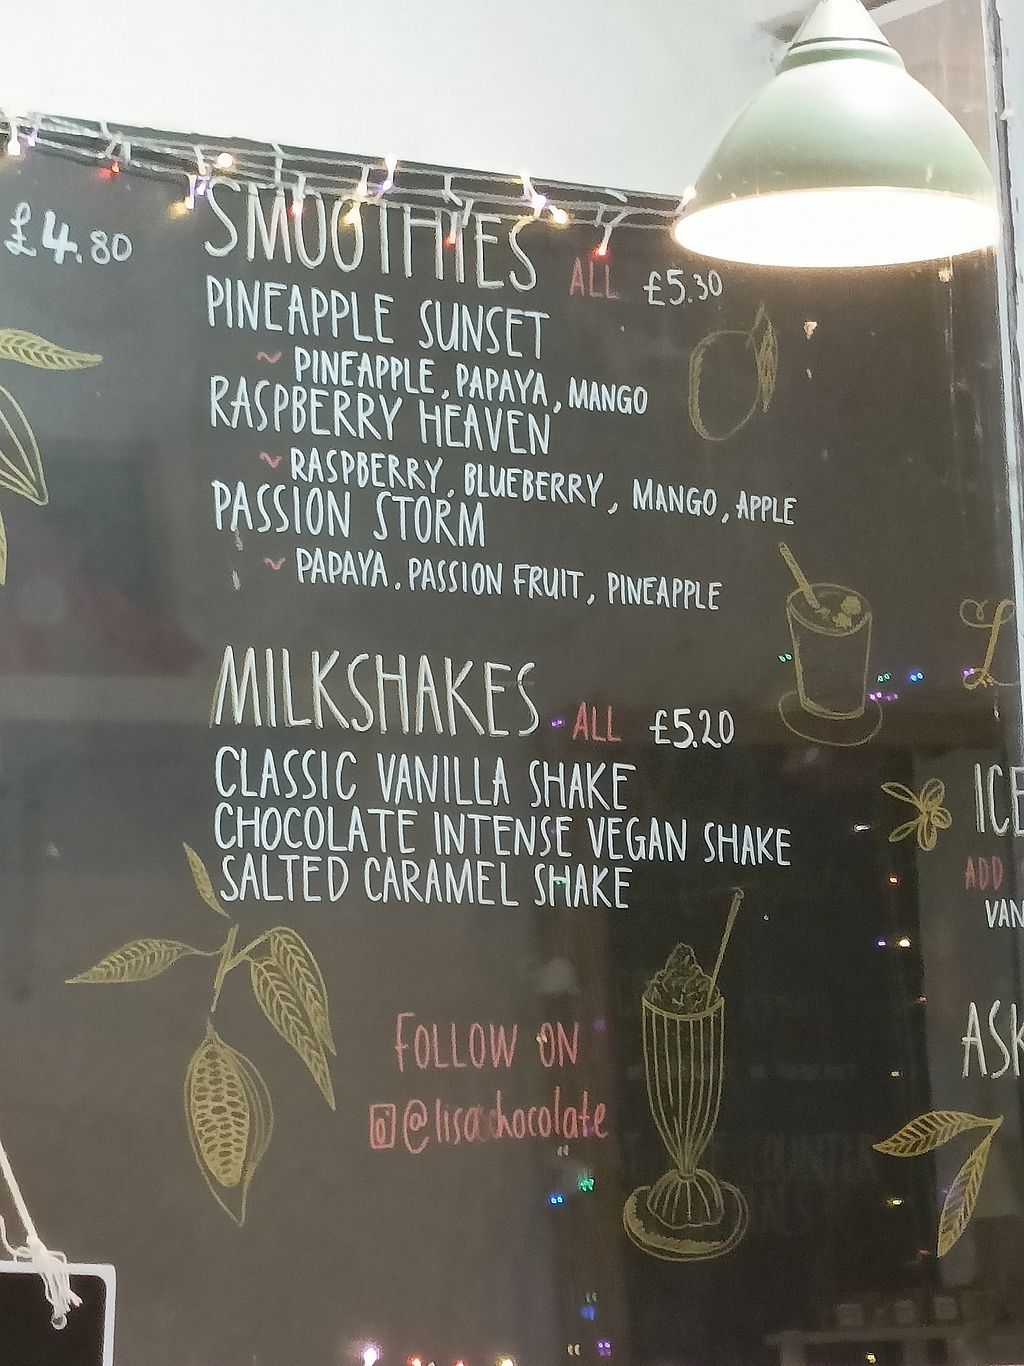 £4.80
SMOOTHIES ALL £5.30
PINEAPPLE SUNSET
~ PINEAPPLE, PAPAYA, MANGO
RASPBERRY HEAVEN
~ RASPBERRY, BLUEBERRY, MANGO, APPLE
PASSION STORM
~ PAPAYA, PASSION FRUIT, PINEAPPLE
MILKSHAKES ALL £5.20
CLASSIC VANILLA SHAKE
CHOCOLATE INTENSE VEGAN SHAKE
SALTED CARAMEL SHAKE
ICE
ADD
VAN
ASK
FOLLOW ON
@lisaschocolate